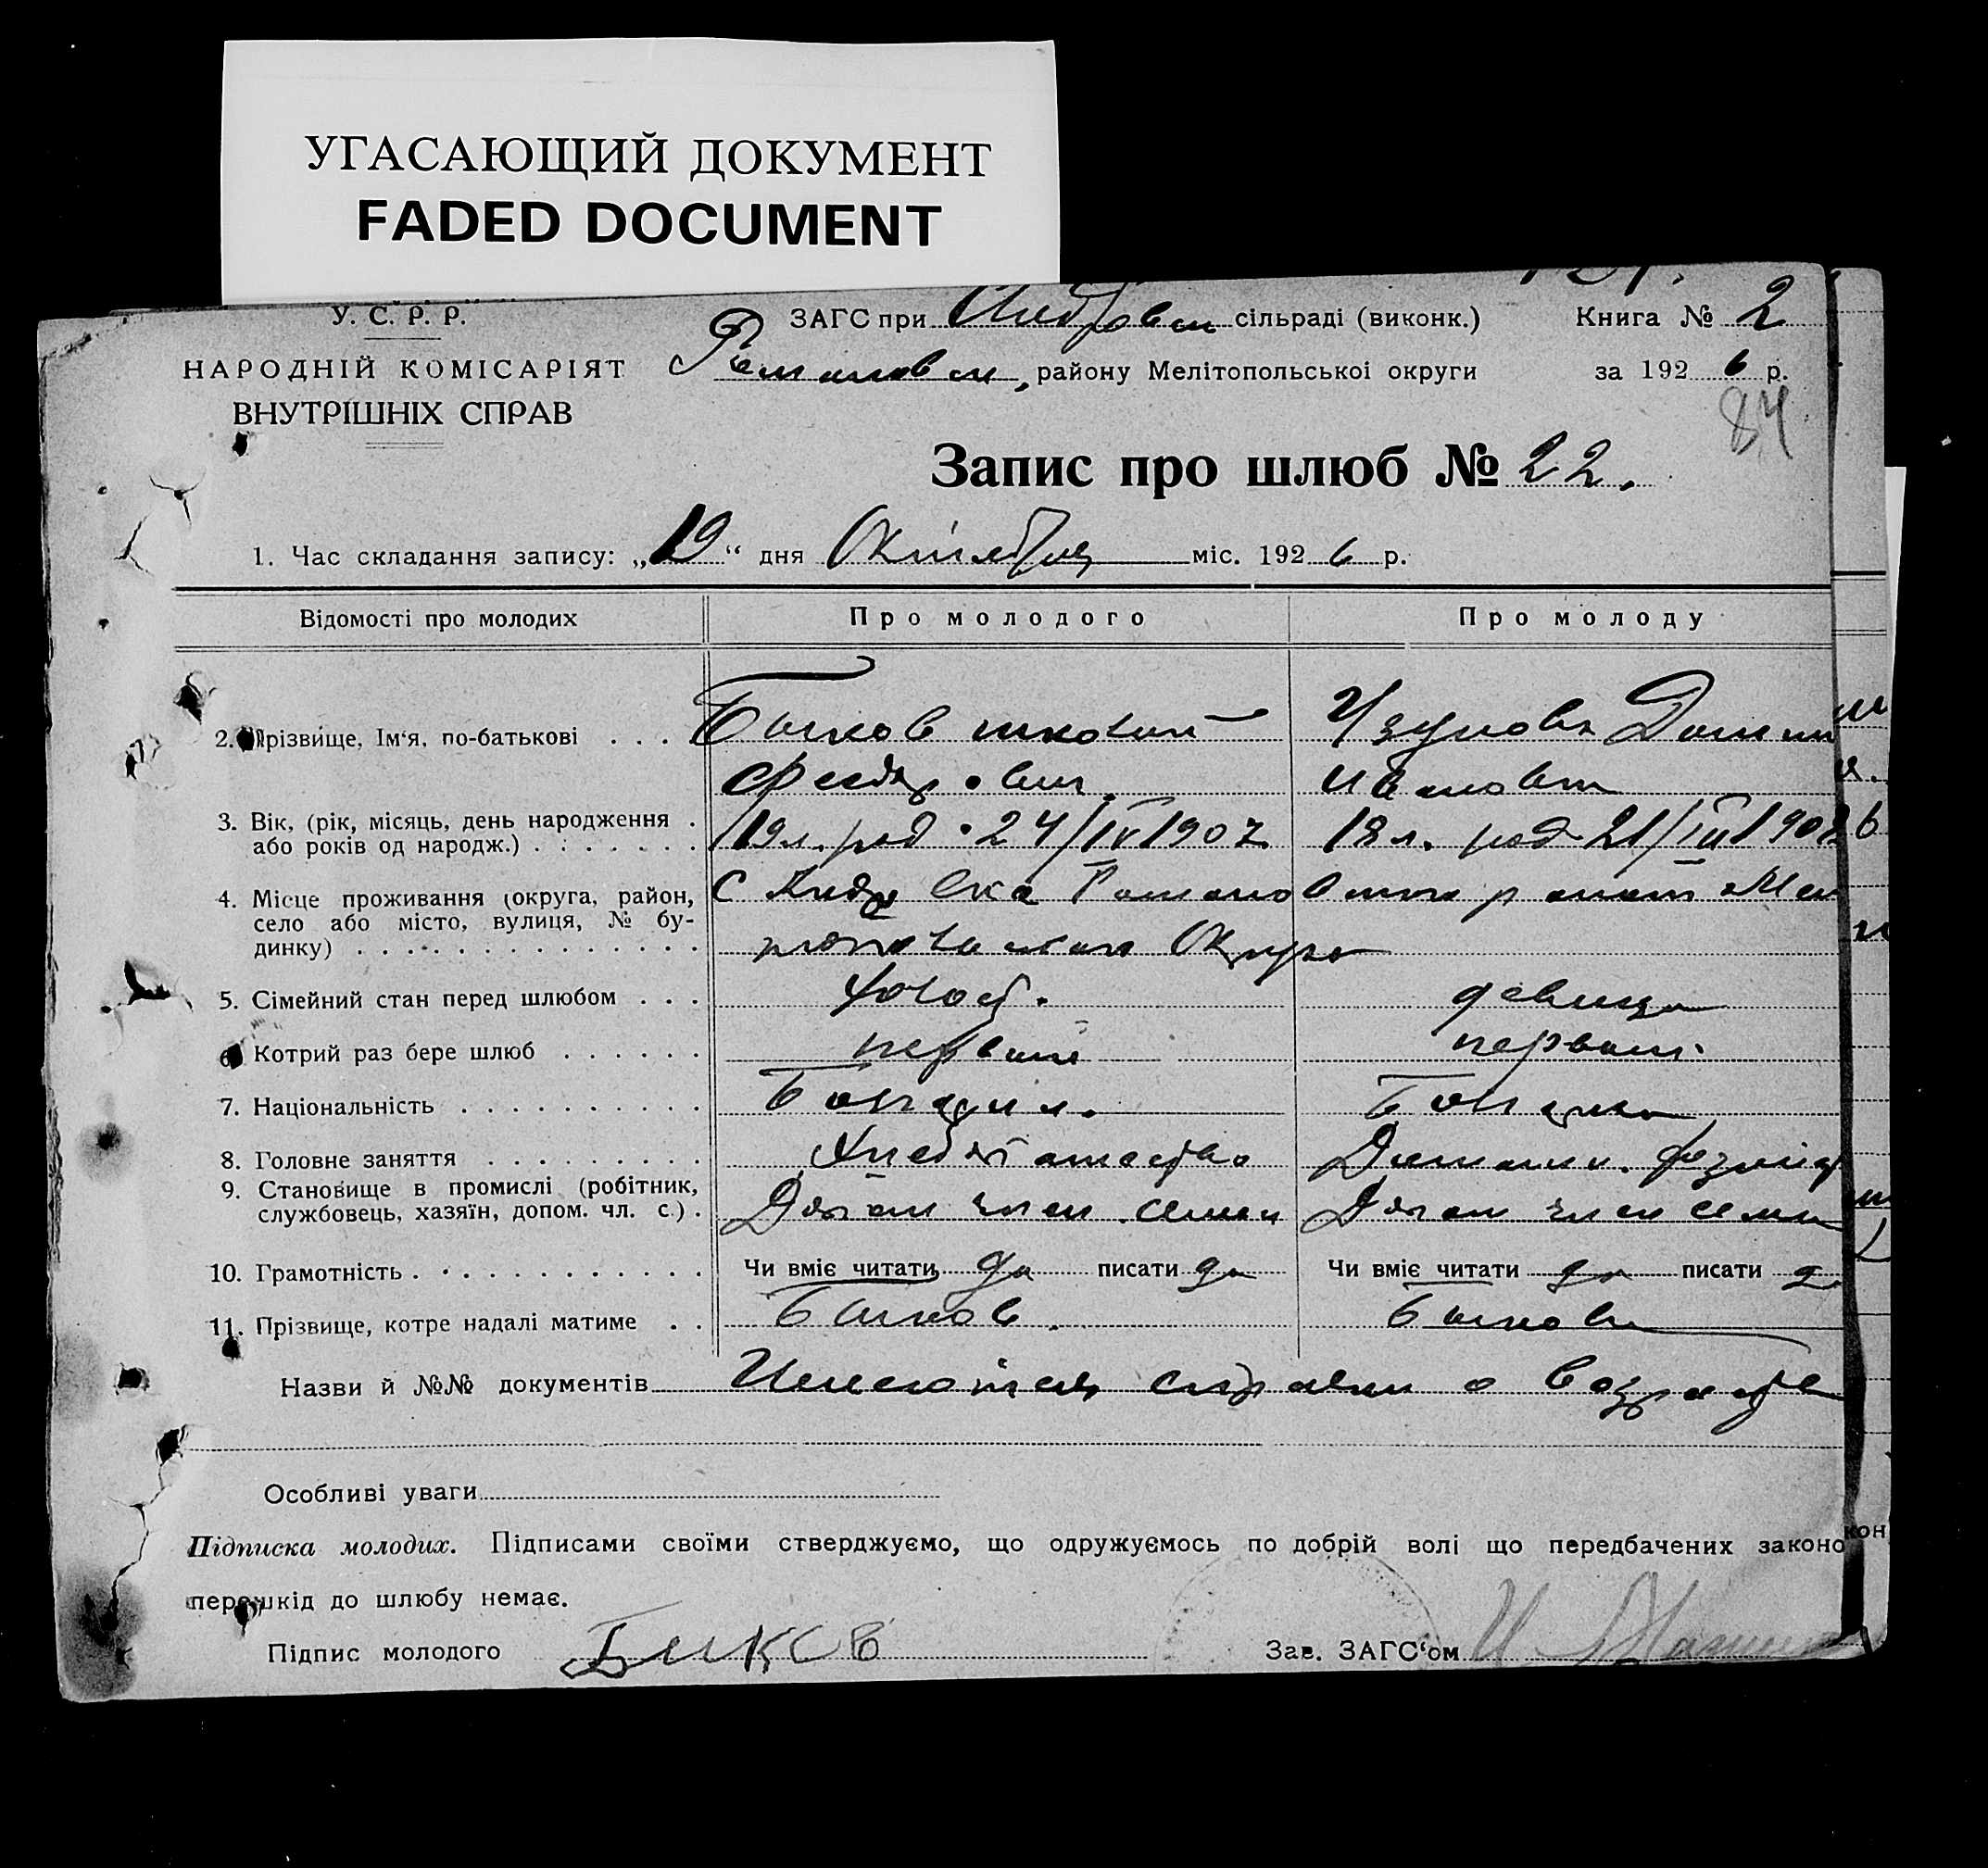 УГАСАЮЩИЙ ДОКУМЕНТ
FADED DOCUMENT
У. С. Р. Р.
НАРОДНІЙ КОМІСАРІЯТ
ВНУТРІШНІХ СПРАВ
ЗАГС при сільраді (виконк.)
району Мелітопольської округи
Книга № 2
за 1926 р.
84
Запис про шлюб № 22.
1. Час складання запису: „19“ дня Октября міс. 1926 р.
Відомості про молодих Про молодого Про молоду
2. Прізвище, Ім‘я, по-батькові . . . Быков Узунова
Ивановна
3. Вік, (рік, місяць, день народження . 19 л. род. 24/IV 1907 18 л. род. 21/III 1908
або років од народж.) . . . . . . .
4. Місце проживання (округа, район, С
село або місто, вулиця, № бу-
динку) . . . . . . . . . . . . . . Округа
5. Сімейний стан перед шлюбом . . . холост. девица
6. Котрий раз бере шлюб . . . . . . первый первый
7. Національність . . . . . . . . . . Болгарин. Болгарка
8. Головне заняття . . . . . . . . . Хлебопашество Домашн.
9. Становище в промислі (робітник,
службовець, хазяїн, допом. чл. с.) . член семьи член семьи
10. Грамотність . . . . . . . . . . . . Чи вміє читати да писати да Чи вміє читати да писати да
11. Прізвище, котре надалі матиме . . Быков. Быкова
Назви й №№ документів Имеются справки о возрасте
Особливі уваги
Підписка молодих. Підписами своїми стверджуємо, що одружуємось по добрій волі що передбачених законо
перешкід до шлюбу немає.
Підпис молодого Биков Зав. ЗАГС‘ом